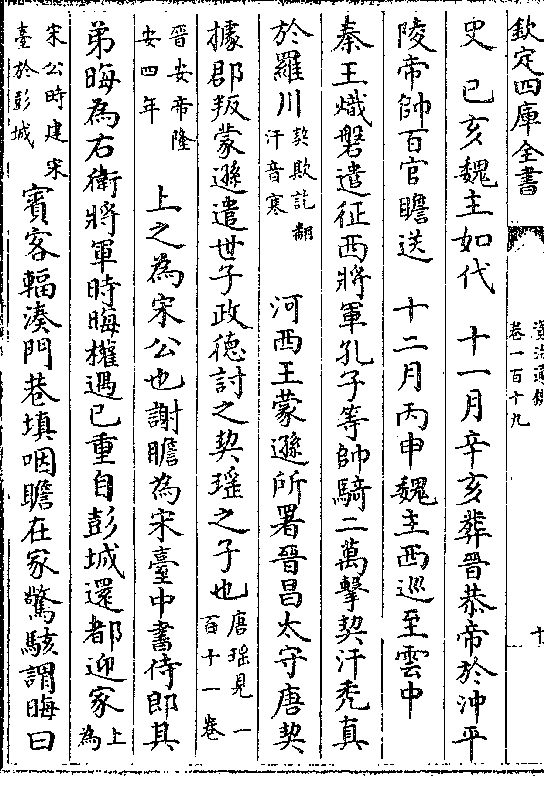 欽定四庫全書
資治通鑑
卷一百十九
十
史　己亥魏主如代　十一月辛亥葬晉恭帝於沖平
陵帝帥百官瞻送　十二月丙申魏主西巡至雲中
秦王熾磐遣征西將軍孔子等帥騎二萬擊契汗禿真
於羅川契欺訖翻汗音寒　河西王蒙遜所署晉昌太守唐契
據郡叛蒙遜遣世子政德討之契瑶之子也唐瑶見一百十一卷
晉安帝隆安四年　上之為宋公也謝瞻為宋臺中書侍郎其
弟晦為右衛將軍時晦權遇已重自彭城還都迎家上為
宋公時建宋臺於彭城　賓客輻湊門巷填咽瞻在家驚駭謂晦曰